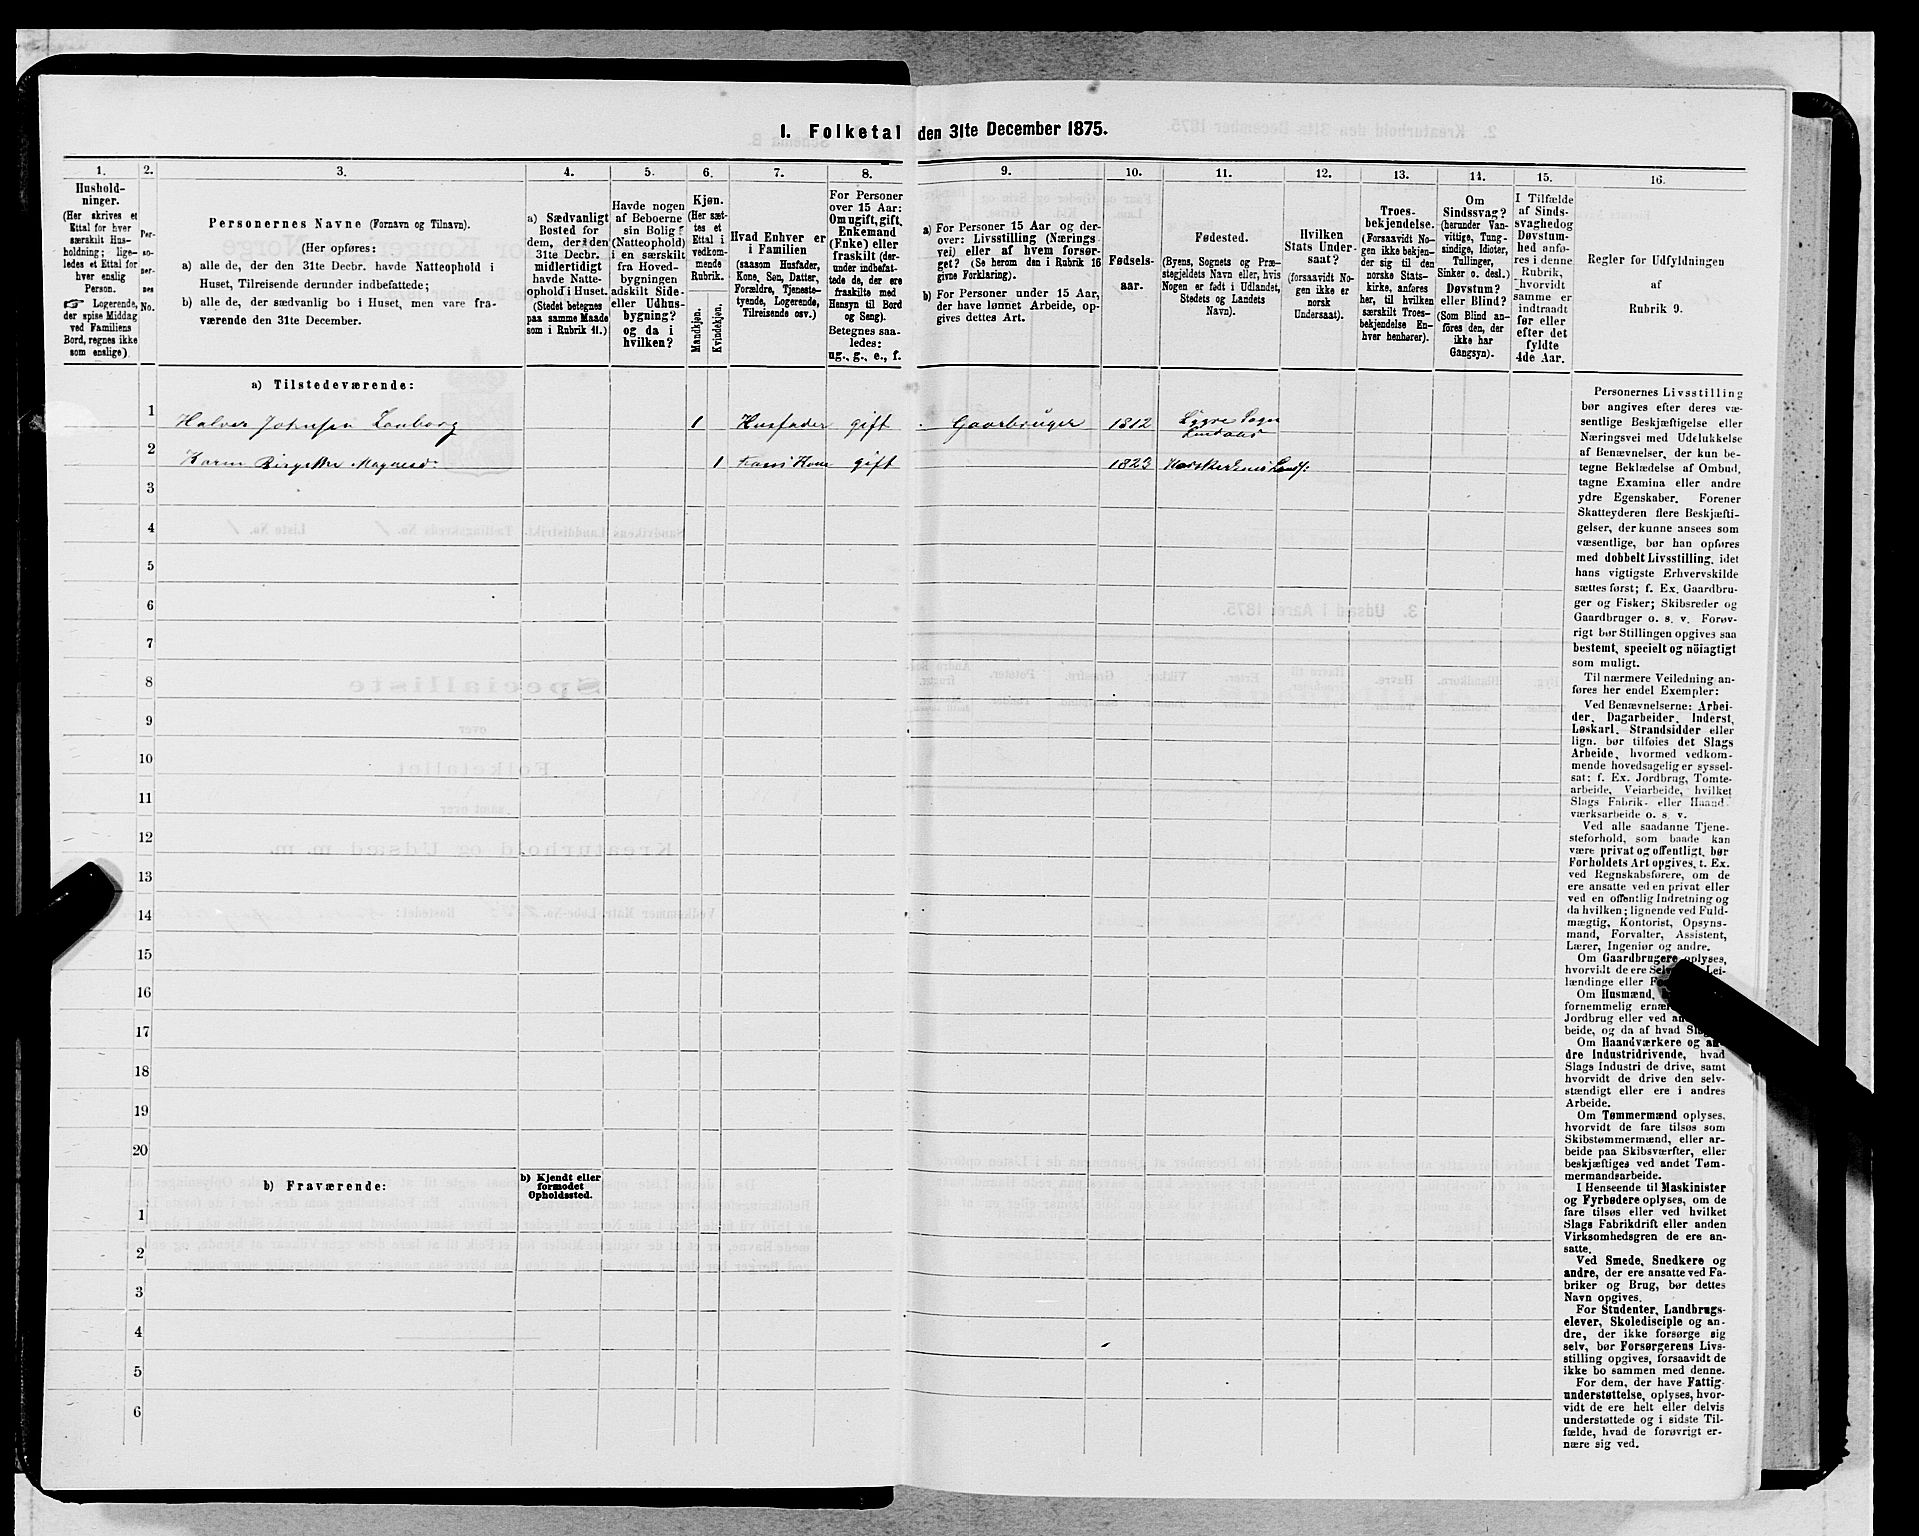 I. Folketal den 31te December 1875.
1.
Hushold-
ninger.
(Her skrives et
Ettal for hver
særskilt Hus-
holdning; lige-
ledes et Ettal for
hver enslig
Person.
☞ Logerende,
der spise Middag
ved Familiens
Bord, regnes ikke
som enslige).
2.
Per-
so-
ner-
nes
No.
3.
Personernes Navne (Fornavn og Tilnavn).
(Her opføres:
a) alle de, der den 31te Decbr. havde Natteophold i
Huset, Tilreisende derunder indbefattede;
b) alle de, der sædvanlig bo i Huset, men vare fra-
værende den 31te December.
4.
a) Sædvanligt
Bosted for
dem, der den
31te Decbr.
midlertidigt
havde Natte-
ophold i Huset.
(Stedet betegnes
paa samme Maade
som i Rubrik 11.)
5.
Havde nogen
af Beboerne
sin Bolig
(Natteophold)
i en særskilt
fra Hoved-
bygningen
adskilt Side-
eller Udhus-
bygning?
og da i
hvilken?
6.
Kjøn.
(Her sæt-
tes et
Ettal i
vedkom-
mende
Rubrik.
Mandkjøn.
Kvindekjøn.
7.
Hvad Enhver er
i Familien
(saasom Husfader,
Kone, Søn, Datter,
Forældre, Tjeneste-
tyende, Logerende,
Tilreisende osv.)
8.
For Personer
over 15 Aar:
Om ugift, gift,
Enkemand
(Enke) eller
fraskilt (der-
under indbefat-
tede de, der ere
fraskilte med
Hensyn til Bord
og Seng).
Betegnes saa-
ledes:
ug., g., e., f.
9.
a) For Personer 15 Aar og der-
over: Livsstilling (Nærings-
vei) eller af hvem forsør-
get? (Se herom den i Rubrik 16
givne Forklaring).
b) For Personer under 15 Aar,
der have lønnet Arbeide, op-
gives dettes Art.
10.
Fødsels-
aar.
11.
Fødested.
(Byens, Sognets og Præ-
stegjeldets Navn eller, hvis
Nogen er født i Udlandet,
Stedets og Landets
Navn).
12.
Hvilken
Stats Under-
saat?
(forsaavidt No-
gen ikke er
norsk
Undersaat).
13.
Troes-
bekjendelse.
(Forsaavidt No-
gen ikke bekjen-
der sig til den
norske Stats-
kirke, anføres
her, til hvilken
særskilt Troes-
bekjendelse En-
hver henhører).
14.
Om
Sindssvag?
(herunder Van-
vittige, Tung-
sindige, Idioter,
Tullinger,
Sinker o. desl.)
Døvstum?
eller Blind?
(Som Blind an-
føres den, der
ikke har
Gangsyn).
15.
I Tilfælde
af Sinds-
svaghed og
Døvstum-
hed anfø-
res i denne
Rubrik,
hvorvidt
samme er
indtraadt
før eller
efter det
fyldte
4de Aar.
16.
Regler for Udfyldningen
af
Rubrik 9.
a) Tilstedeværende:
1 Halver Johnsen 1 Husfader gift Gaarbruger 1812 Lygre Sogn
Lindaas
2 Karen 1 Hans Kone gift 1823
3
4
5
6
7
8
9
10
11
12
13
14
15
16
17
18
19
20
b) Fraværende:
b) Kjendt eller
formodet
Opholdssted.
1
2
3
4
5
6
Personernes Livsstilling
bør angives efter deres væ-
sentlige Beskjæftigelse eller
Næringsvei med Udelukkelse
af Benævnelser, der kun be-
tegne Beklædelse af Ombud,
tagne Examina eller andre
ydre Egenskaber. Forener
Skatteyderen flere Beskjæfti-
gelser, der kunne ansees som
væsentlige, bør han opføres
med dobbelt Livsstilling, idet
hans vigtigste Erhvervskilde
sættes først; f. Ex. Gaardbru-
ger og Fisker; Skibsreder og
Gaardbruger o. s. v. Forøv-
rigt bør Stillingen opgives saa
bestemt, specielt og nöiagtigt
som muligt.
Til nærmere Veiledning an-
føres her endel Exempler:
Ved Benævnelserne: Arbei-
der, Dagarbeider, Inderst,
Løskarl, Strandsidder eller
lign. bør tilføies det Slags
Arbeide, hvormed vedkom-
mende hovedsagelig er syssel-
sat; f. Ex. Jordbrug, Tomte-
arbeide, Veiarbeide, hvilket
Slags Fabrik- eller Haand-
værksarbeide o. s. v.
Ved alle saadanne Tjene-
steforhold, som baade kan
være privat og offentligt, bør
Forholdets Art opgives, t. Ex.
ved Regnskabsførere, om de
ere ansatte ved en privat eller
ved en offentlig Indretning og
da hvilken; lignende ved Fuld-
mægtig, Kontorist, Opsyns-
mand, Forvalter, Assistent,
Lærer, Ingeniør og andre.
Om Gaardbrugere oplyses,
hvorvidt de ere Lei-
lændinge eller
Om Husmænd,
fornemmelig
Jordbrug eller ved
beide, og da af hvad
Om Haandværkere og an-
dre Industridrivende, hvad
Slags Industri de drive, samt
hvorvidt de drive den selv-
stændigt eller ere i andres
Arbeide.
Om Tømmermænd oplyses,
hvorvidt de fare tilsøs som
Skibstømmermænd, eller ar-
beide paa Skibsværfter, eller
beskjæftiges ved andet Tøm-
mermandsarbeide.
I Henseende til Maskinister
og Fyrbødere oplyses, om de
fare tilsøs eller ved hvilket
Slags Fabrikdrift eller anden
Virksomhedsgren de ere an-
satte.
Ved Smede, Snedkere og
andre, der ere ansatte ved Fa-
briker og Brug, bør dettes
Navn opgives.
For Studenter, Landbrugs-
elever, Skoledisciple og an-
dre, der ikke forsørge sig
selv, bør Forsørgerens Livs-
stilling opgives, forsaavidt de
ikke bo sammen med denne.
For dem, der have Fattig-
understøttelse, oplyses, hvor-
vidt de ere helt eller delvis
understøttede og i sidste Til-
fælde, hvad de forøvrigt er-
nære sig ved.